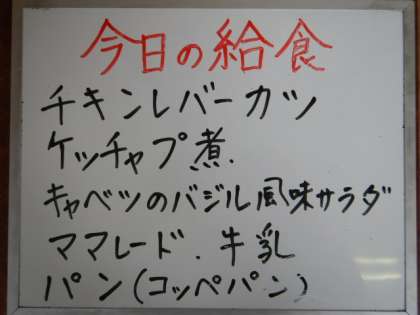 今日の給食
チキンレバーカツ
ケッチャプ煮.
キャベツのバジル風味サラダ
ママレード.牛乳
パン(コッペパン)